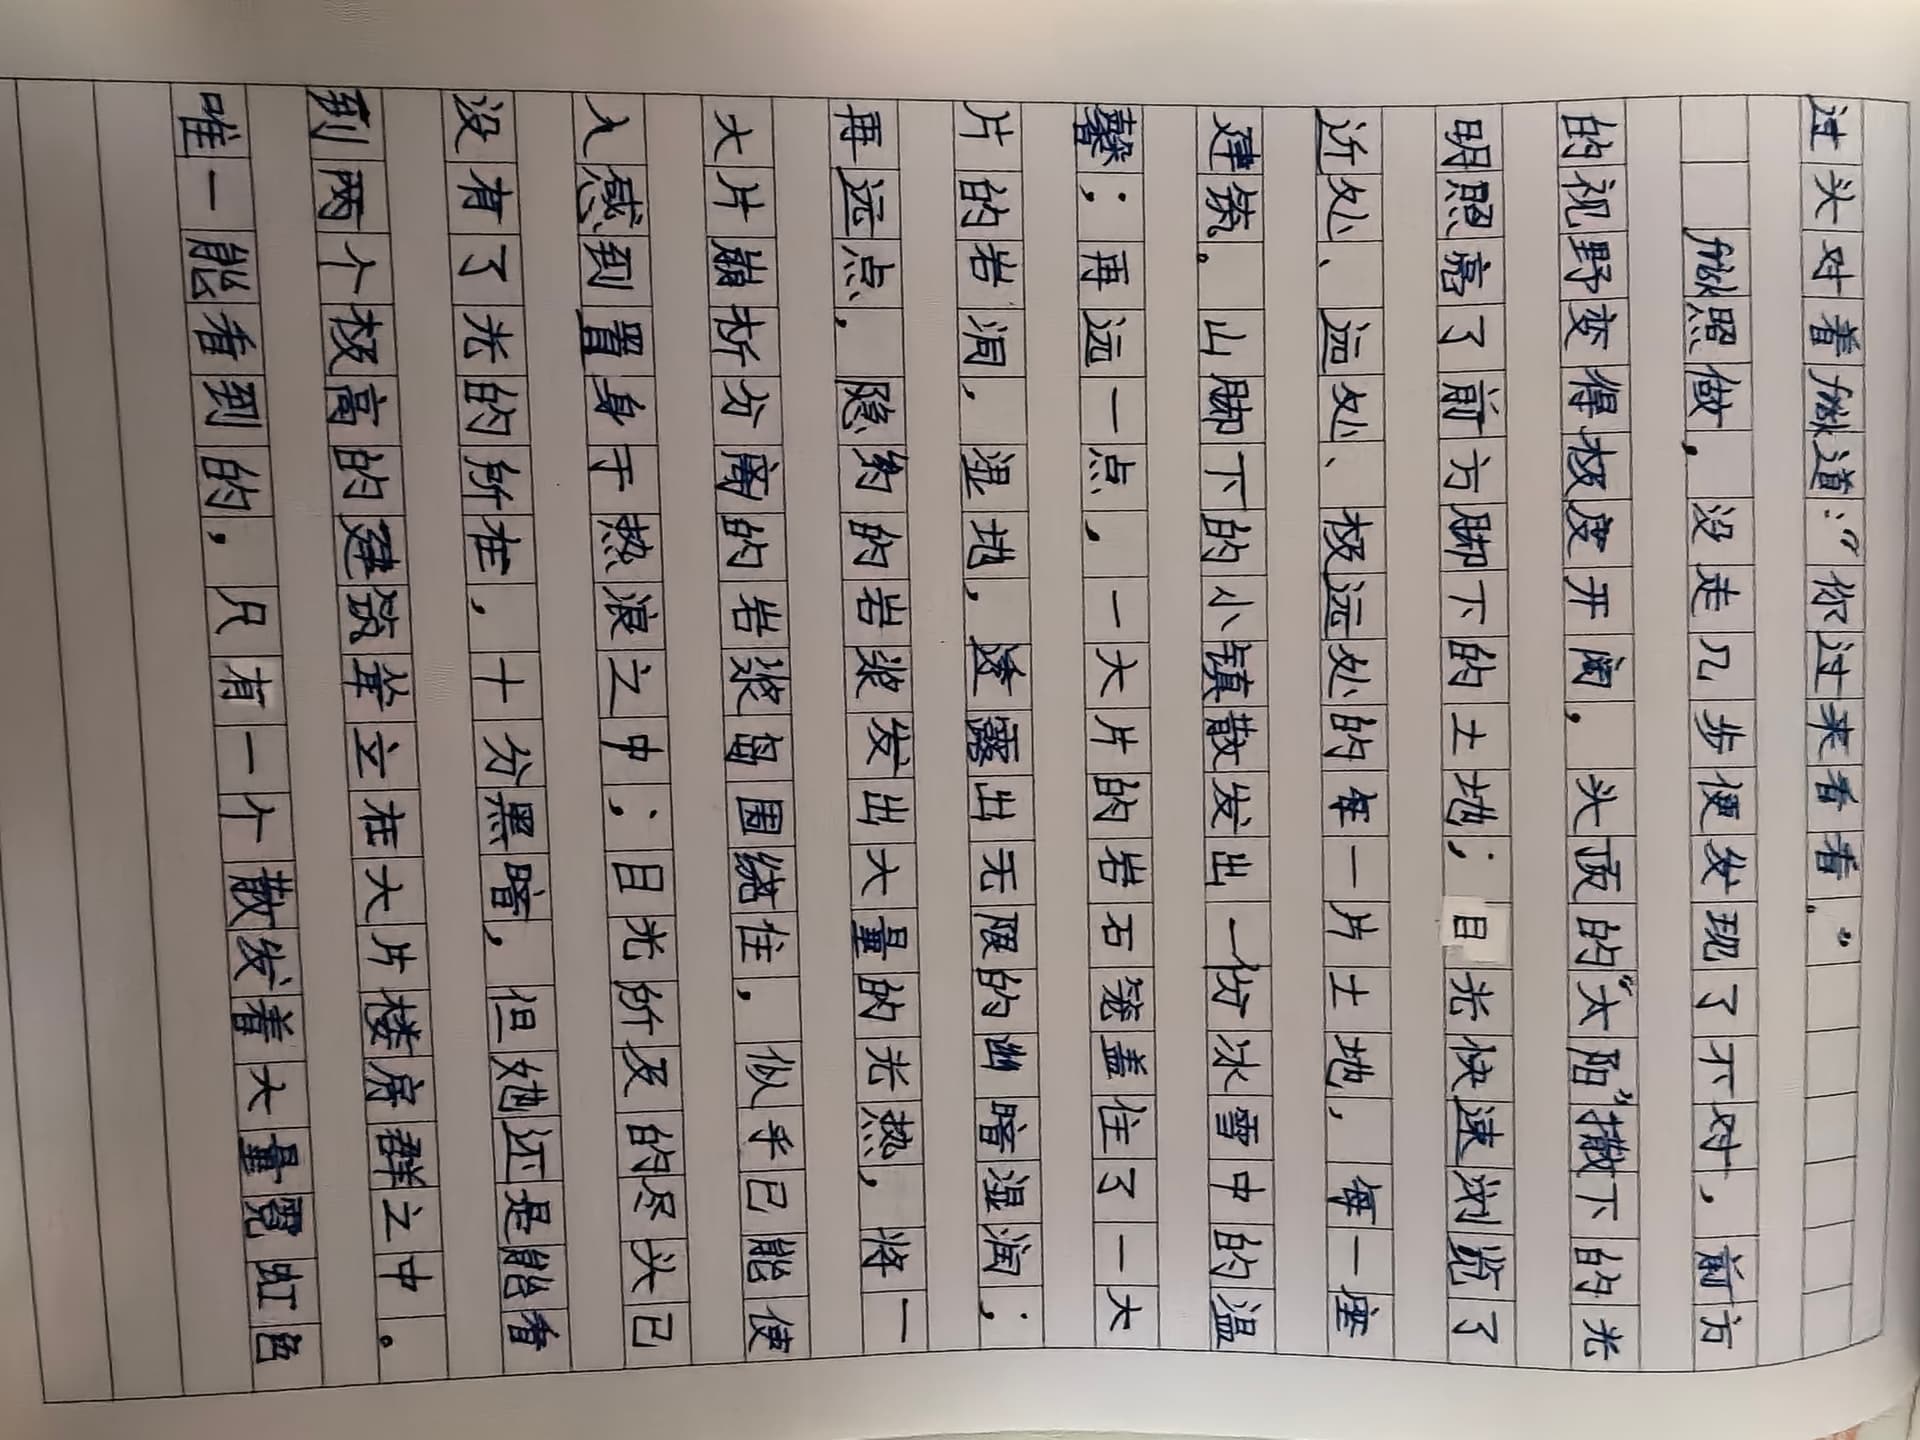 过头对着道：“你过来看看。”
照做，没走几步便发现了不对，前方
的视野变得极度开阔，头顶的“太阳”撒下的光
明照亮了前方脚下的土地；目光快速浏览了
近处、远处、极远处的每一片土地，每一座
建筑。山脚下的小镇散发出一份冰雪中的温
馨；再远一点，一大片的岩石笼盖住了一大
片的岩洞，湿地，透露出无限的幽暗湿润；
再远点，隐约的岩浆发出大量的光热，将一
大片崩析分离的岩浆岛围绕住，似乎已能使
人感到置身于热浪之中；目光所及的尽头已
没有了光的所在，十分黑暗，但她还是能看
到两个极高的建筑耸立在大片楼房群之中。
唯一能看到的，只有一个散发着大量霓虹色